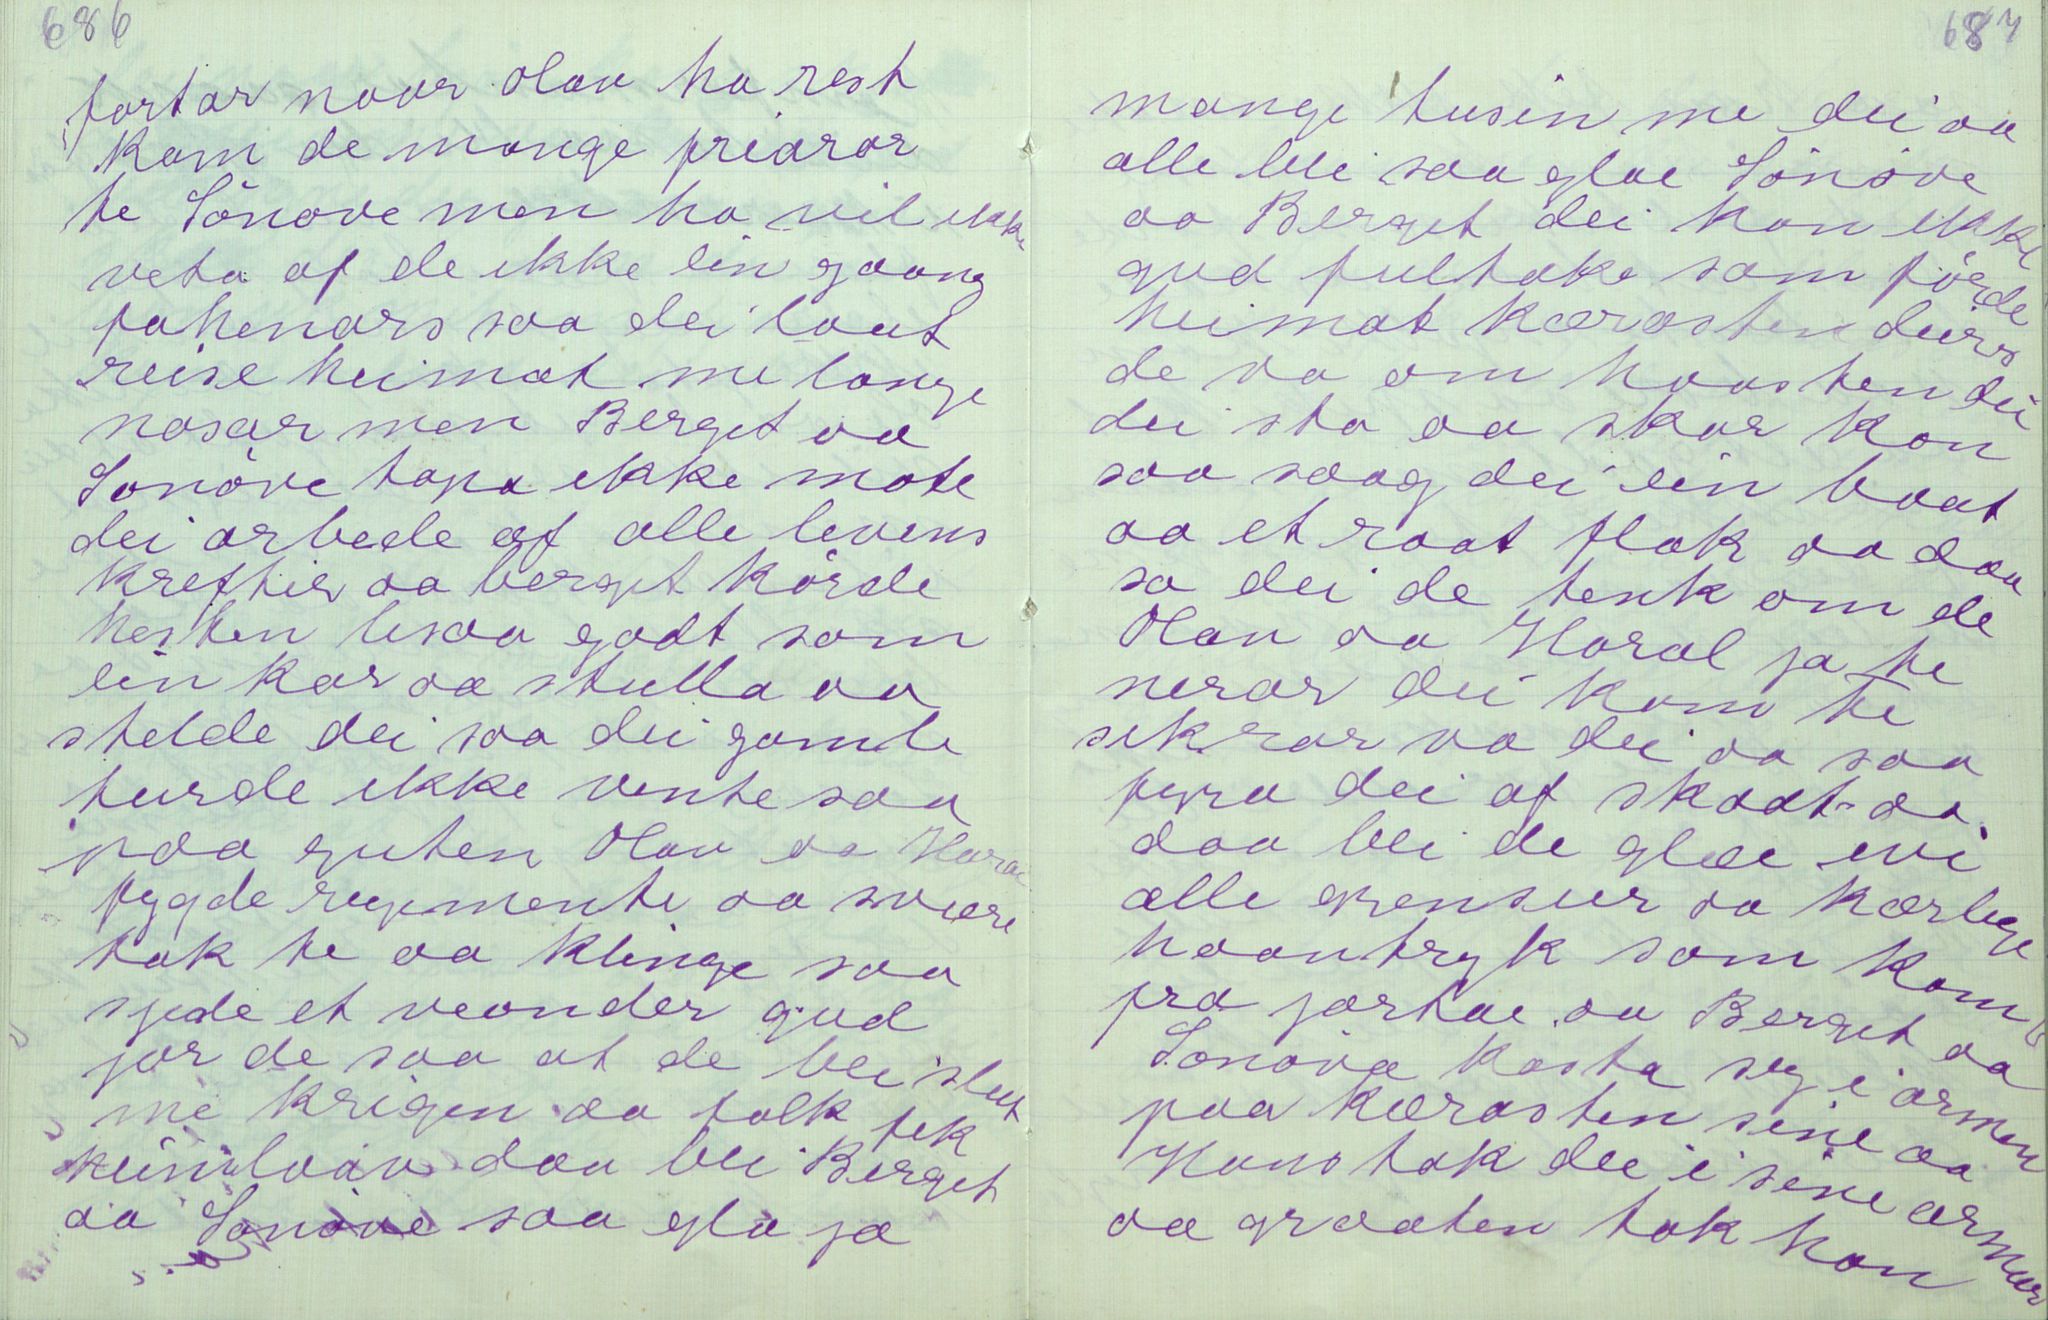 686
fortar naar Olav ha rest
kom de mange friarar
te Sönöve men ho vil ikke
veta af de ikke ein gaang
fahenars saa dei laat
reise heimat me lange
nasar men Berget aa
Sonöve tapa ikke mote
dei arbede af alle levens
krefter aa berget körde
hesten lisaa godt som
ein kar aa stulla aa
stelde dei saa dei gamle
turde ikke vente saa
paa guten Olav aa Haral
fygde regimente aa svære
tok te aa klinge saa
sjede et veonder gud
jor de saa at de blei slut
me krigen aa folk fek
heimlaav daa blei Berget
aa Sonöve saa gla ja
687
mange tusin me dei aa
alle blei saa glae Sönöve
aa Berget dei kan ikke
gud fultake som förde
heimat kærasten deirs
de va om haasten dei
dei sto aa skar kon
saa saag dei ein baat
aa et raat flak aa daa
sa dei de tenk om de
Olav aa Haral ja te
nerar dei kom te
sekrar va dei aa saa
fyra dei af skaat aa
daa blei de glæe uvi
alle grensur aa kærlege
haantryk som kom
fra jartæ aa Berget aa
Sonöve kasta seg i armen
paa kærasten sine aa
Hans tok dei i sine armar
aa graaten tok han